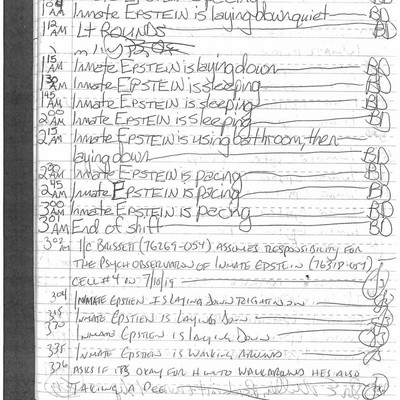 1 AM Inmate EPSTEIN is laying down quiet BD
1 12 AM Lt ROUNDS BD
1 15 AM Inmate EPSTEIN is laying down BD
1 30 AM Inmate EPSTEIN is sleeping BD
1 45 AM Inmate EPSTEIN is sleeping BD
2 00 AM Inmate EPSTEIN is sleeping BD
2 15 AM Inmate EPSTEIN is using bathroom, then
laying down BD
2 30 AM Inmate EPSTEIN is pacing BD
2 45 AM Inmate EPSTEIN is pacing BD
3 00 AM Inmate EPSTEIN is pacing BD
3 01 AM End of shift BD
302 I/C BRISSETT (76269-054) ASSUMES RESPONSIBILITY FOR
THE PSYCH OBSERVATION OF INMATE EPSTEIN (76318-054)
CELL #4 IN 7/10/19
304 INMATE EPSTIEN IS LAYING DOWN RIGHT NOW
315 INMATE EPSTIEN IS LAYING DOWN
INMATE EPSTIEN IS LAYING DOWN
335 INMATE EPSTIEN IS WALKING AROUND
336 ASKS IF ITS OKAY FOR HIM TO WALK AROUND HES ALSO
TAKING A PEE